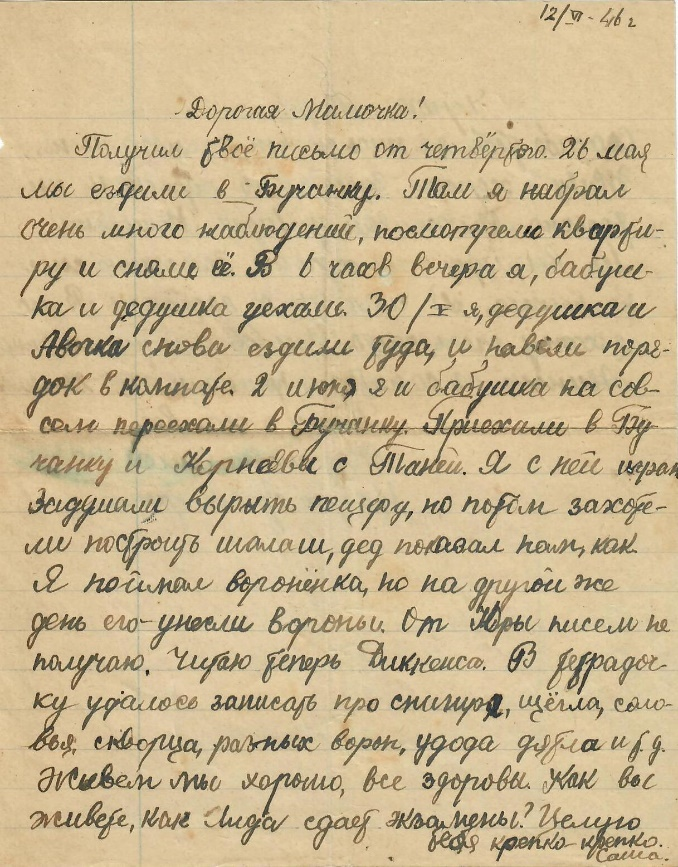 12/VI - 46 г
Дорогая Мамочка!
Получил твоё письмо от четвёртого. 26 мая
мы ездили в Бучанку. Там я набрал
очень много наблюдений, посмотрели кварти-
ру и сняли её. В 6 часов вечера я, бабуш-
ка и дедушка уехали. 30/V я, дедушка и
Авочка снова ездили туда, и навели поря-
док в комнате. 2 июня я и бабушка на сов-
сем переехали в Бучанку. Приехали в Бу-
чанку и Корнеевы с Таней. Я с ней играл
Задумали вырыть пещеру, но потом захоте-
ли построить шалаш, дед показал нам, как.
Я поймал воронёнка, но на другой же
день его унесли вороны. От Юры писем не
получаю. Читаю теперь Диккенса. В тетрадоч-
ку удалось записать про снигиря, щёгла, соло-
вья, скворца, разных ворон, удода дятла и т.д.
Живём мы хорошо, все здоровы. Как вы
живете, как Лида сдаёт экзамены? Целую
тебя крепко-крепко.
Саша.